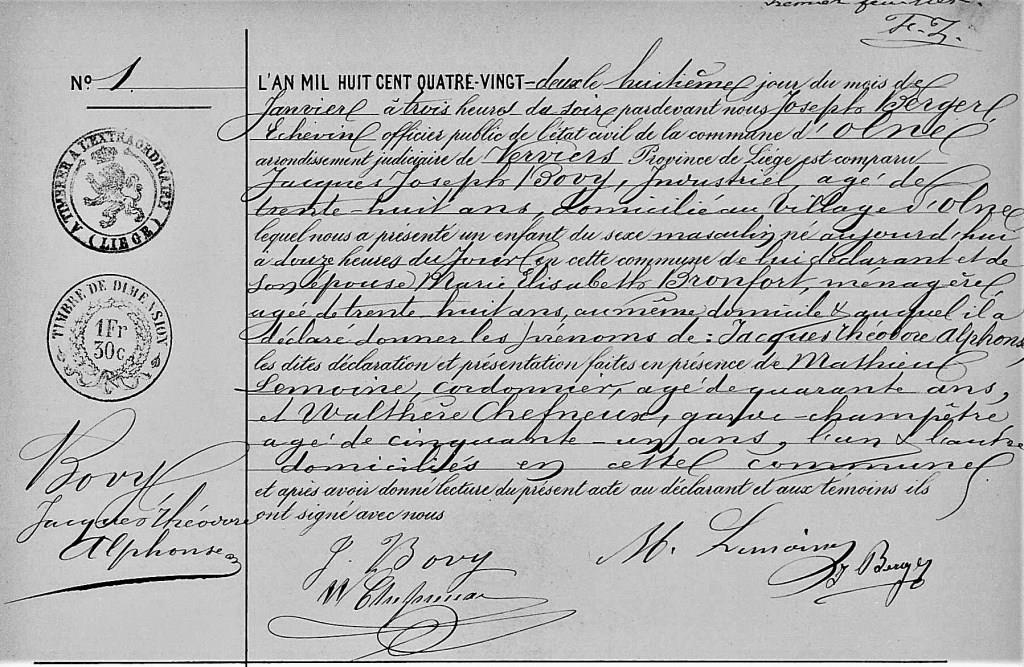 Premier feuillet.
F. Z.
Nº 1.
L'AN MIL HUIT CENT QUATRE-VINGT-deux le huitième jour du mois de
Janvier à trois heures du soir pardevant nous Joseph Berger,
Echevin officier public de l'état civil de la commune d'Olne
arrondissement judiciaire de Verviers Province de Liége est comparu
Jacques Joseph Bovy, Industriel, agé de
trente-huit ans, domicilié au village d'Olne
lequel nous a présenté un enfant du sexe masculin né aujourd'hui
à douze heures du Jour en cette commune de lui déclarant et de
son épouse Marie Elisabeth Bronfort, ménagère
agée de trente huit ans, au même domicile & auquel il a
déclaré donner les prénoms de : Jacques Théodore Alphonse
les dites déclaration et présentation faites en présence de Mathieu
Lemoine, cordonnier, agé de quarante ans,
et Walthère Chefneux, garde-champêtre
agé de cinquante-un ans, l'un & l'autre
domiciliés en cette commune
et après avoir donné lecture du présent acte au déclarant et aux témoins ils
ont signé avec nous
TIMBRE A L'EXTRAORDINAIRE
(LIÉGE)
TIMBRE DE DIMENSION
1Fr
30c
Bovy
Jacques Théodore
Alphonse
J. Bovy
M. Lemoine
W Chefneux
J Berger